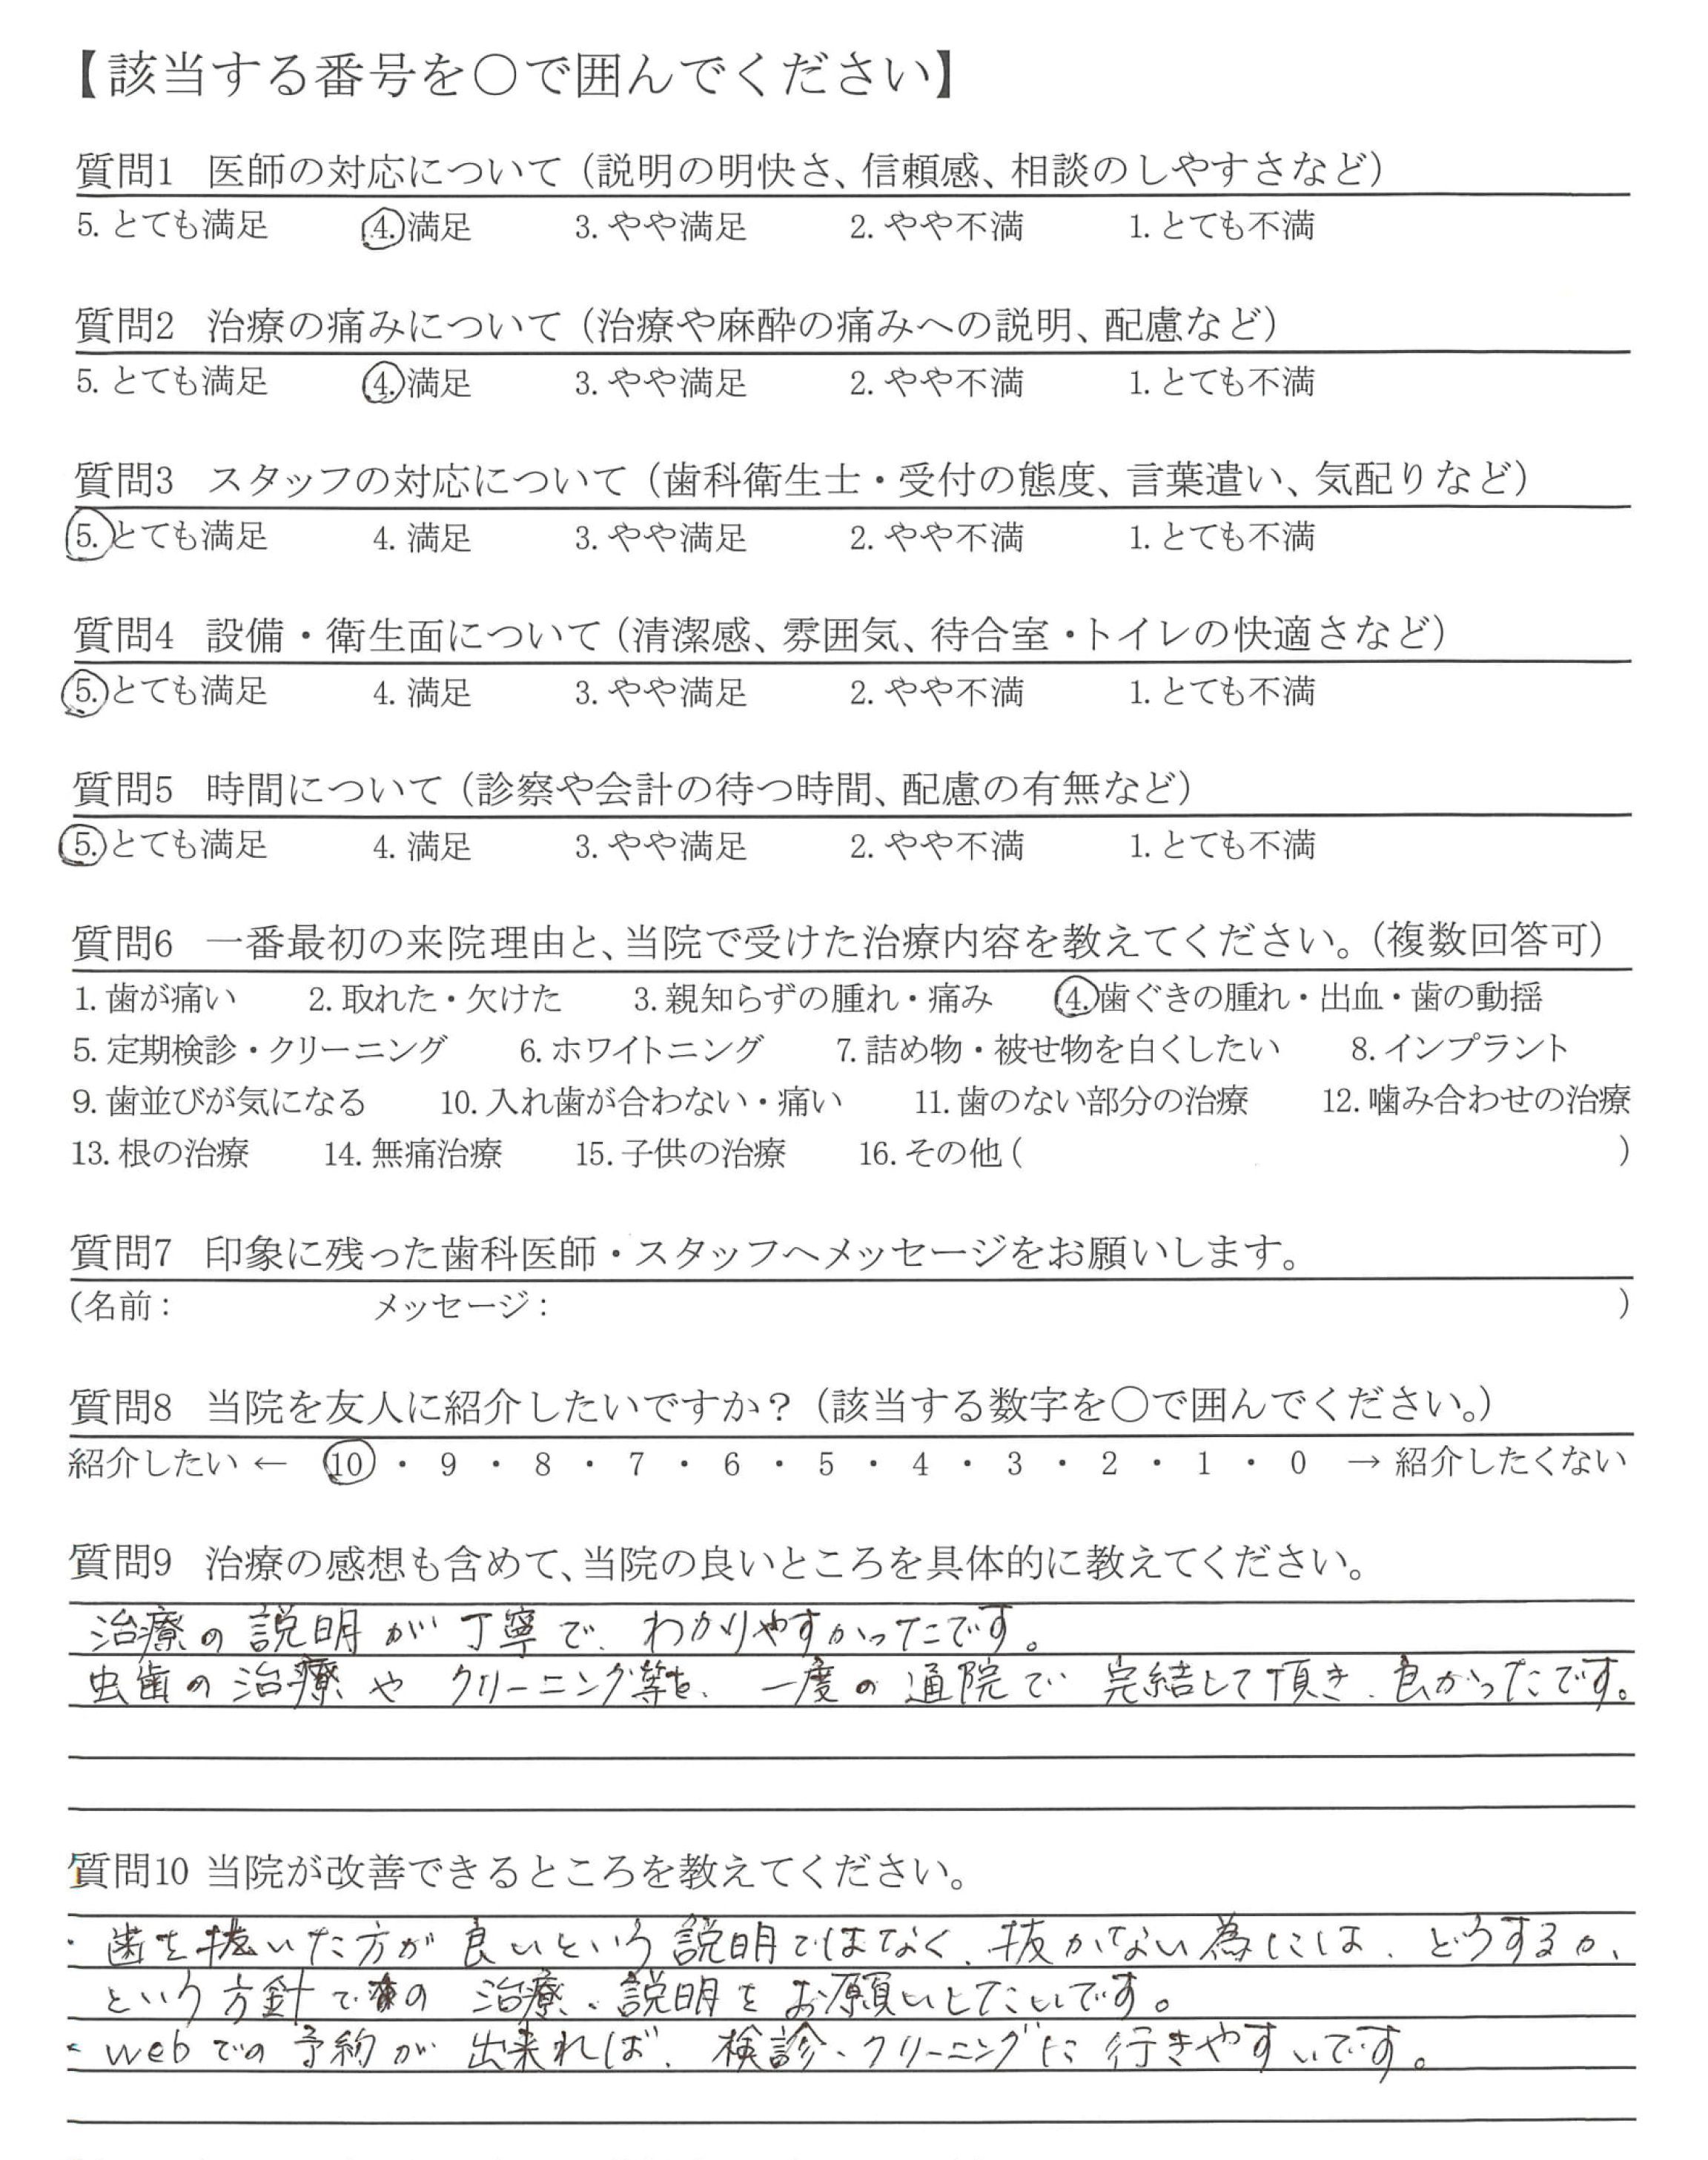 【該当する番号を○で囲んでください】
質問1 医師の対応について（説明の明快さ、信頼感、相談のしやすさなど）
5. とても満足 4. 満足 3. やや満足 2. やや不満 1. とても不満
質問2 治療の痛みについて（治療や麻酔の痛みへの説明、配慮など）
5. とても満足 4. 満足 3. やや満足 2. やや不満 1. とても不満
質問3 スタッフの対応について（歯科衛生士・受付の態度、言葉遣い、気配りなど）
5. とても満足 4. 満足 3. やや満足 2. やや不満 1. とても不満
質問4 設備・衛生面について（清潔感、雰囲気、待合室・トイレの快適さなど）
5. とても満足 4. 満足 3. やや満足 2. やや不満 1. とても不満
質問5 時間について（診察や会計の待つ時間、配慮の有無など）
5. とても満足 4. 満足 3. やや満足 2. やや不満 1. とても不満
質問6 一番最初の来院理由と、当院で受けた治療内容を教えてください。（複数回答可）
1. 歯が痛い 2. 取れた・欠けた 3. 親知らずの腫れ・痛み 4. 歯ぐきの腫れ・出血・歯の動揺
5. 定期検診・クリーニング 6. ホワイトニング 7. 詰め物・被せ物を白くしたい 8. インプラント
9. 歯並びが気になる 10. 入れ歯が合わない・痛い 11. 歯のない部分の治療 12. 噛み合わせの治療
13. 根の治療 14. 無痛治療 15. 子供の治療 16. その他 ( )
質問7 印象に残った歯科医師・スタッフへメッセージをお願いします。
(名前： メッセージ： )
質問8 当院を友人に紹介したいですか？（該当する数字を○で囲んでください。）
紹介したい ← 10 ・ 9 ・ 8 ・ 7 ・ 6 ・ 5 ・ 4 ・ 3 ・ 2 ・ 1 ・ 0 → 紹介したくない
質問9 治療の感想も含めて、当院の良いところを具体的に教えてください。
治療の説明が丁寧で、わかりやすかったです。
虫歯の治療やクリーニング等を、一度の通院で完結して頂き、良かったです。
質問10 当院が改善できるところを教えてください。
・歯を抜いた方が良いという説明ではなく、抜かない為には、どうするか、
という方針での治療、説明をお願いしたいです。
・webでの予約が出来れば、検診、クリーニングに行きやすいです。